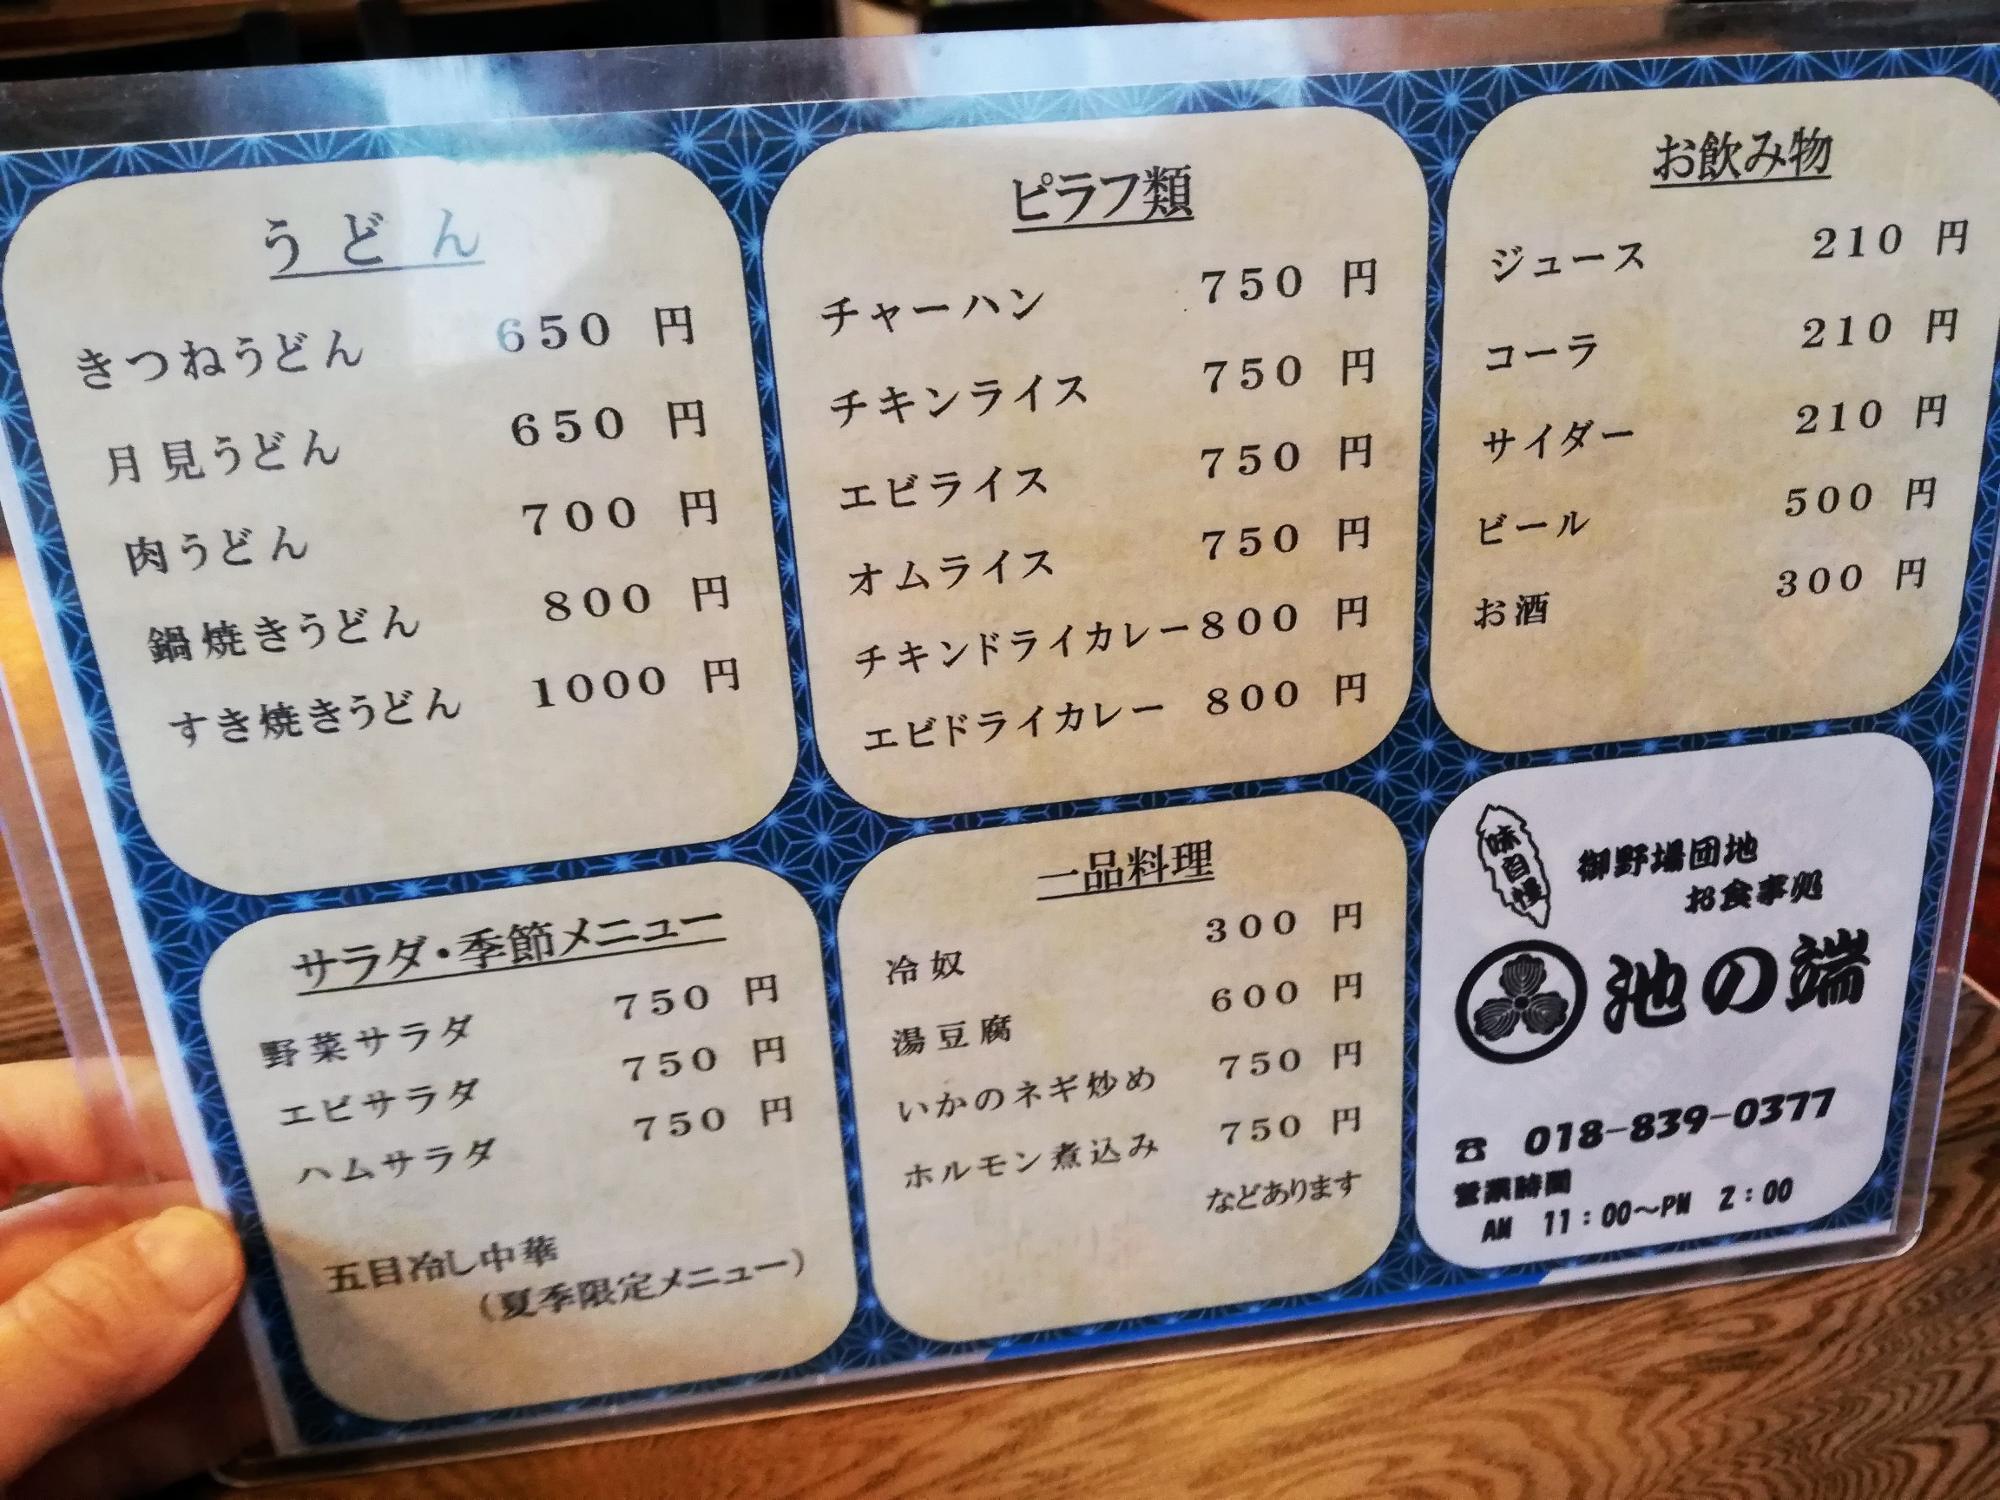 うどん
きつねうどん 650 円
月見うどん 650 円
肉うどん 700 円
鍋焼きうどん 800 円
すき焼きうどん 1000 円
ピラフ類
チャーハン 750 円
チキンライス 750 円
エビライス 750 円
オムライス 750 円
チキンドライカレー 800 円
エビドライカレー 800 円
お飲み物
ジュース 210 円
コーラ 210 円
サイダー 210 円
ビール 500 円
お酒 300 円
サラダ・季節メニュー
野菜サラダ 750 円
エビサラダ 750 円
ハムサラダ 750 円
五目冷し中華
（夏季限定メニュー）
一品料理
冷奴 300 円
湯豆腐 600 円
いかのネギ炒め 750 円
ホルモン煮込み 750 円
などあります
味自慢
御野場団地
お食事処
池の端
☎ 018-839-0377
営業時間
AM 11：00～PM 2：00